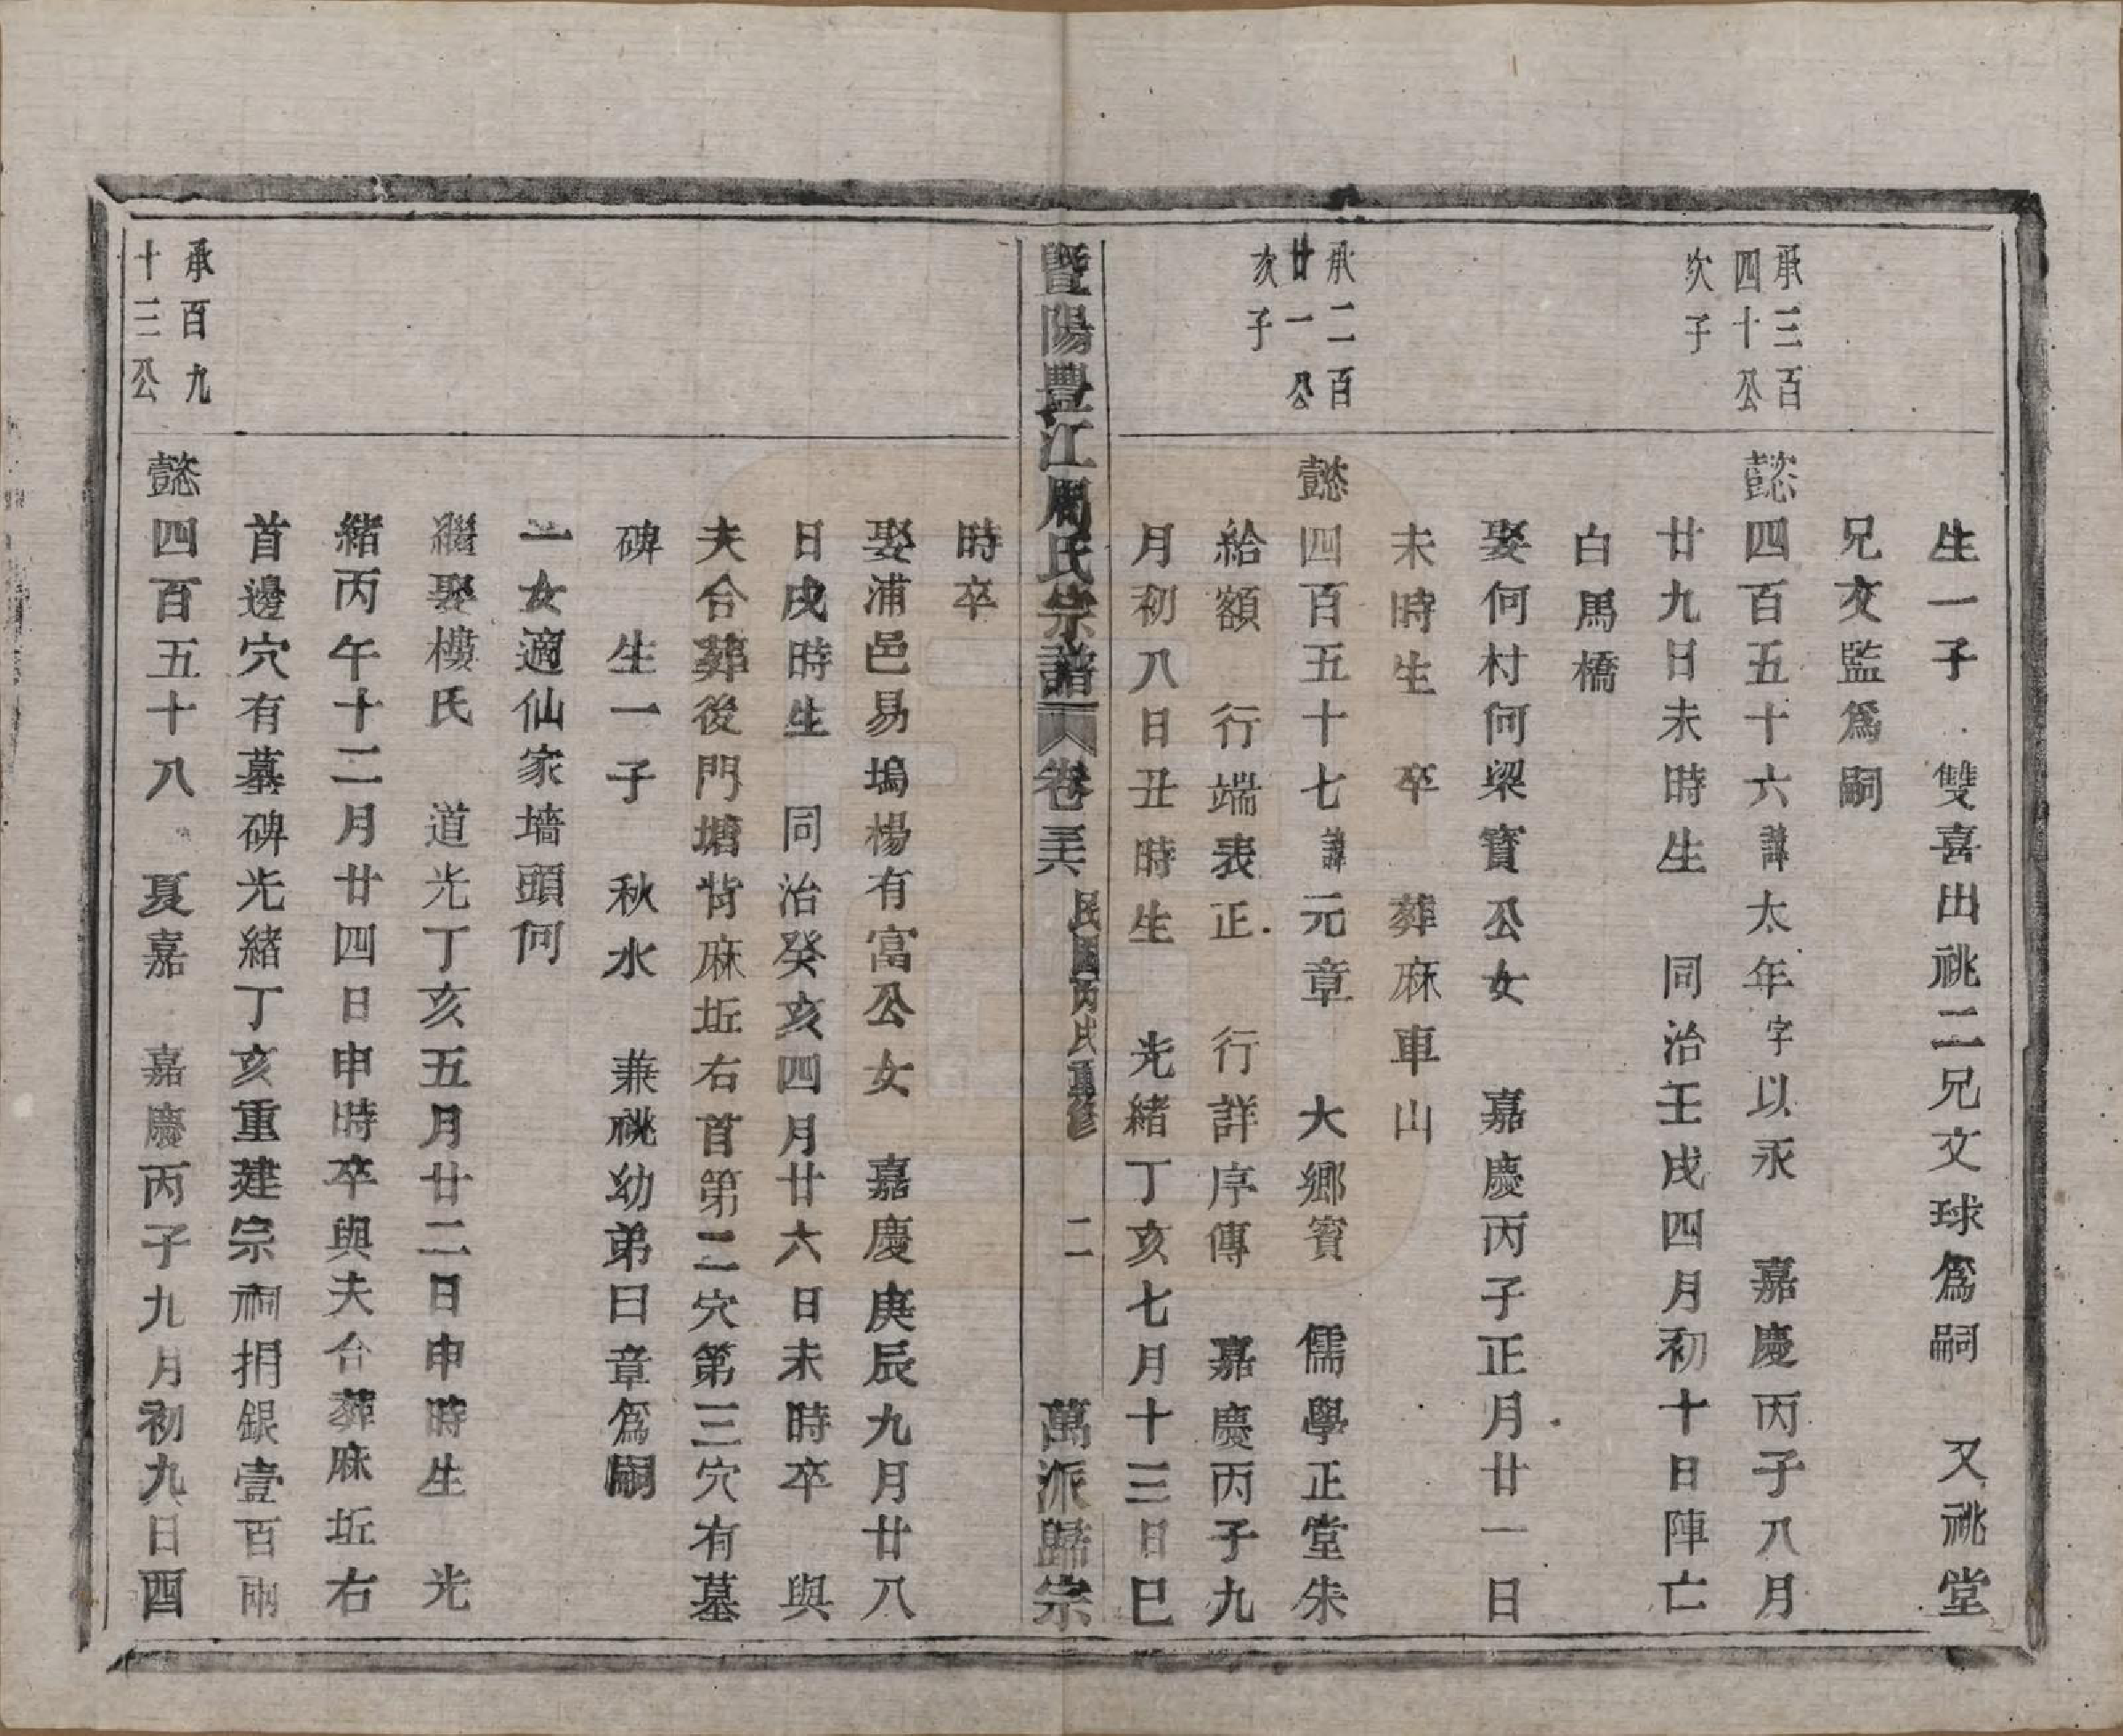 生一子　雙喜出祧二兄文球爲嗣　又祧堂
兄文監爲嗣
承三百
四十公
次子
懿四百五十六諱太年字以永　嘉慶丙子八月
廿九日未時生　同治壬戌四月初十日陣亡
白馬橋
娶何村何梁寶公女　嘉慶丙子正月廿一日
未時生　卒　葬麻車山
承二百
廿一公
次子
懿四百五十七諱元章　大鄉賓　儒學正堂朱
給額　行端表正　行詳序傳　嘉慶丙子九
月初八日丑時生　光緒丁亥七月十三日巳
暨陽豐江周氏宗譜　卷三六　民國丙戌重修　二　萬派歸宗
時卒
娶浦邑易塢楊有富公女　嘉慶庚辰九月廿八
日戌時生　同治癸亥四月廿六日未時卒　與
夫合葬後門塘背麻坵右首第二穴第三穴有墓
碑　生一子　秋水　兼祧幼弟曰章爲嗣
一女適仙家墻頭何
繼娶樓氏　道光丁亥五月廿二日申時生　光
緒丙午十二月廿四日申時卒與夫合葬麻坵右
首邊穴有墓碑光緒丁亥重建宗祠捐銀壹百兩
承百九
十三公
懿四百五十八　夏嘉　嘉慶丙子九月初九日酉